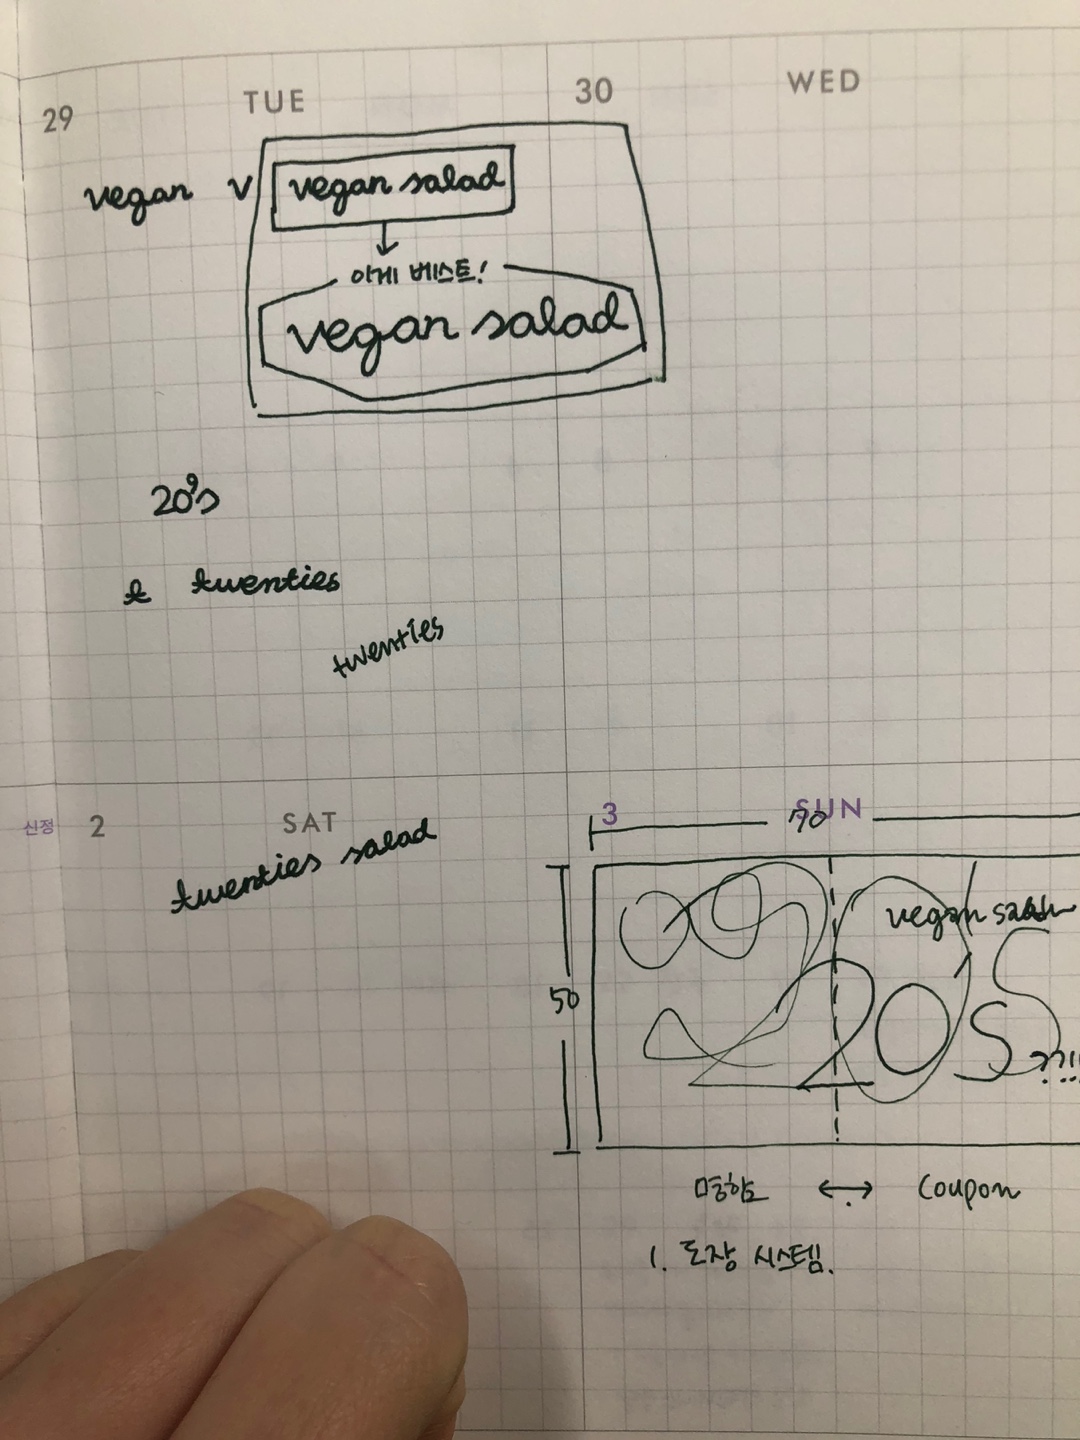 29 TUE 30 WED
vegan v vegan salad
이게 베스트!
vegan salad
20's
t twenties
twenties
신정 2 SAT 3 SUN
twenties salad
90
vegan salad
50
20s
명함 ↔ Coupon
1. 도장 시스템.